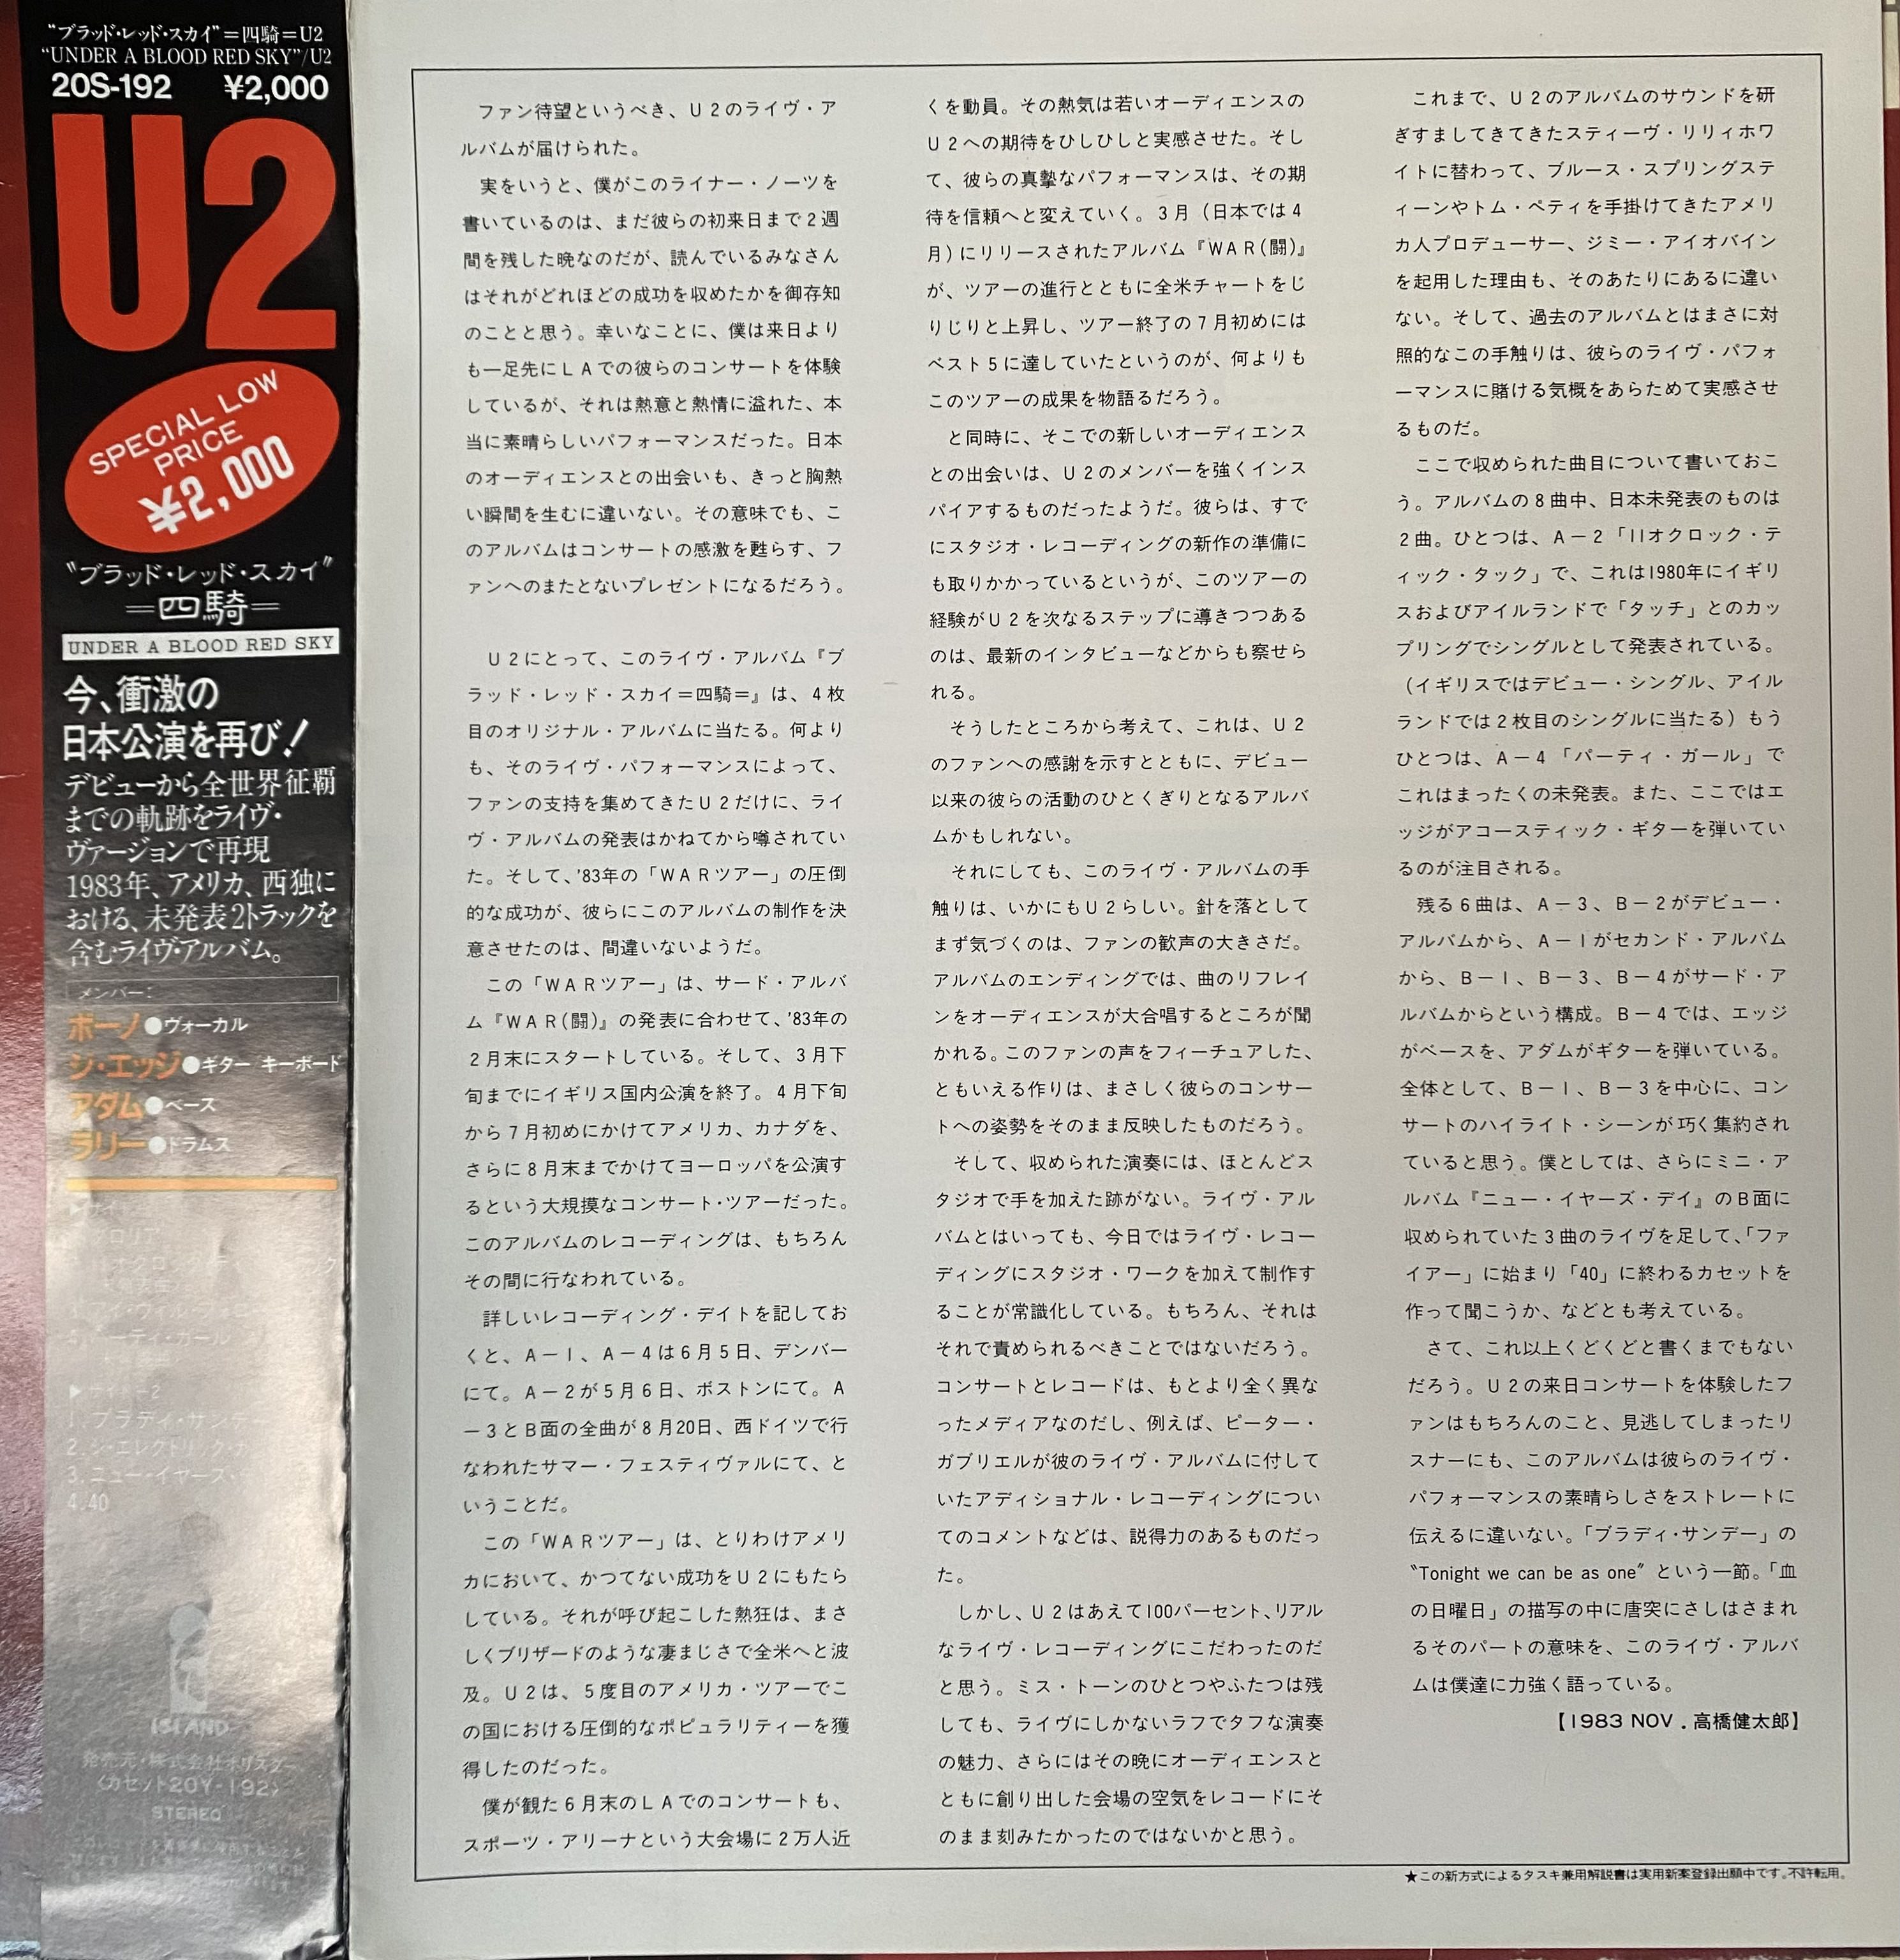 “ブラッド・レッド・スカイ”＝四騎＝U2
“UNDER A BLOOD RED SKY”/U2
20S-192 ¥2,000
U2
SPECIAL LOW
PRICE
¥2,000
“ブラッド・レッド・スカイ”
＝四騎＝
UNDER A BLOOD RED SKY
今、衝激の
日本公演を再び！
デビューから全世界征覇
までの軌跡をライヴ・
ヴァージョンで再現
1983年、アメリカ、西独に
おける、未発表2トラックを
含むライヴ・アルバム。
メンバー：
ボーノ●ヴォーカル
シ・エッジ●ギター キーボード
アダム●ベース
ラリー●ドラムス
▶サイド-2
1.ブラディ・サンデー
2.シ・エレクトリック・
3.ニュー・イヤーズ・
4.40
ISLAND
発売元・株式会社ポリスター
〈カセット20Y-192〉
STEREO
ファン待望というべき、Ｕ２のライヴ・ア
ルバムが届けられた。
実をいうと、僕がこのライナー・ノーツを
書いているのは、まだ彼らの初来日まで２週
間を残した晩なのだが、読んでいるみなさん
はそれがどれほどの成功を収めたかを御存知
のことと思う。幸いなことに、僕は来日より
も一足先にＬＡでの彼らのコンサートを体験
しているが、それは熱意と熱情に溢れた、本
当に素晴らしいパフォーマンスだった。日本
のオーディエンスとの出会いも、きっと胸熱
い瞬間を生むに違いない。その意味でも、こ
のアルバムはコンサートの感激を甦らす、フ
ァンへのまたとないプレゼントになるだろう。
Ｕ２にとって、このライヴ・アルバム『ブ
ラッド・レッド・スカイ＝四騎＝』は、４枚
目のオリジナル・アルバムに当たる。何より
も、そのライヴ・パフォーマンスによって、
ファンの支持を集めてきたＵ２だけに、ライ
ヴ・アルバムの発表はかねてから噂されてい
た。そして、'83年の「ＷＡＲツアー」の圧倒
的な成功が、彼らにこのアルバムの制作を決
意させたのは、間違いないようだ。
この「ＷＡＲツアー」は、サード・アルバ
ム『ＷＡＲ(闘)』の発表に合わせて、'83年の
２月末にスタートしている。そして、３月下
旬までにイギリス国内公演を終了。４月下旬
から７月初めにかけてアメリカ、カナダを、
さらに８月末までかけてヨーロッパを公演す
るという大規摸なコンサート・ツアーだった。
このアルバムのレコーディングは、もちろん
その間に行なわれている。
詳しいレコーディング・デイトを記してお
くと、Ａ－１、Ａ－４は６月５日、デンバー
にて。Ａ－２が５月６日、ボストンにて。Ａ
－３とＢ面の全曲が８月20日、西ドイツで行
なわれたサマー・フェスティヴァルにて、と
いうことだ。
この「ＷＡＲツアー」は、とりわけアメリ
カにおいて、かつてない成功をＵ２にもたら
している。それが呼び起こした熱狂は、まさ
しくブリザードのような凄まじさで全米へと波
及。Ｕ２は、５度目のアメリカ・ツアーでこ
の国における圧倒的なポピュラリティーを獲
得したのだった。
僕が観た６月末のＬＡでのコンサートも、
スポーツ・アリーナという大会場に２万人近
くを動員。その熱気は若いオーディエンスの
Ｕ２への期待をひしひしと実感させた。そし
て、彼らの真摯なパフォーマンスは、その期
待を信頼へと変えていく。３月（日本では４
月）にリリースされたアルバム『ＷＡＲ(闘)』
が、ツアーの進行とともに全米チャートをじ
りじりと上昇し、ツアー終了の７月初めには
ベスト５に達していたというのが、何よりも
このツアーの成果を物語るだろう。
と同時に、そこでの新しいオーディエンス
との出会いは、Ｕ２のメンバーを強くインス
パイアするものだったようだ。彼らは、すで
にスタジオ・レコーディングの新作の準備に
も取りかかっているというが、このツアーの
経験がＵ２を次なるステップに導きつつある
のは、最新のインタビューなどからも察せら
れる。
そうしたところから考えて、これは、Ｕ２
のファンへの感謝を示すとともに、デビュー
以来の彼らの活動のひとくぎりとなるアルバ
ムかもしれない。
それにしても、このライヴ・アルバムの手
触りは、いかにもＵ２らしい。針を落として
まず気づくのは、ファンの歓声の大きさだ。
アルバムのエンディングでは、曲のリフレイ
ンをオーディエンスが大合唱するところが聞
かれる。このファンの声をフィーチュアした、
ともいえる作りは、まさしく彼らのコンサー
トへの姿勢をそのまま反映したものだろう。
そして、収められた演奏には、ほとんどス
タジオで手を加えた跡がない。ライヴ・アル
バムとはいっても、今日ではライヴ・レコー
ディングにスタジオ・ワークを加えて制作す
ることが常識化している。もちろん、それは
それで責められるべきことではないだろう。
コンサートとレコードは、もとより全く異な
ったメディアなのだし、例えば、ピーター・
ガブリエルが彼のライヴ・アルバムに付して
いたアディショナル・レコーディングについ
てのコメントなどは、説得力のあるものだっ
た。
しかし、Ｕ２はあえて100パーセント、リアル
なライヴ・レコーディングにこだわったのだ
と思う。ミス・トーンのひとつやふたつは残
しても、ライヴにしかないラフでタフな演奏
の魅力、さらにはその晩にオーディエンスと
ともに創り出した会場の空気をレコードにそ
のまま刻みたかったのではないかと思う。
これまで、Ｕ２のアルバムのサウンドを研
ぎすましてきてきたスティーヴ・リリィホワ
イトに替わって、ブルース・スプリングステ
ィーンやトム・ペティを手掛けてきたアメリ
カ人プロデューサー、ジミー・アイオバイン
を起用した理由も、そのあたりにあるに違い
ない。そして、過去のアルバムとはまさに対
照的なこの手触りは、彼らのライヴ・パフォ
ーマンスに賭ける気概をあらためて実感させ
るものだ。
ここで収められた曲目について書いておこ
う。アルバムの８曲中、日本未発表のものは
２曲。ひとつは、Ａ－２「11オクロック・テ
ィック・タック」で、これは1980年にイギリ
スおよびアイルランドで「タッチ」とのカッ
プリングでシングルとして発表されている。
（イギリスではデビュー・シングル、アイル
ランドでは２枚目のシングルに当たる）もう
ひとつは、Ａ－４「パーティ・ガール」で
これはまったくの未発表。また、ここではエ
ッジがアコースティック・ギターを弾いてい
るのが注目される。
残る６曲は、Ａ－３、Ｂ－２がデビュー・
アルバムから、Ａ－１がセカンド・アルバム
から、Ｂ－１、Ｂ－３、Ｂ－４がサード・ア
ルバムからという構成。Ｂ－４では、エッジ
がベースを、アダムがギターを弾いている。
全体として、Ｂ－１、Ｂ－３を中心に、コン
サートのハイライト・シーンが巧く集約され
ていると思う。僕としては、さらにミニ・ア
ルバム『ニュー・イヤーズ・デイ』のＢ面に
収められていた３曲のライヴを足して、「ファ
イアー」に始まり「40」に終わるカセットを
作って聞こうか、などとも考えている。
さて、これ以上くどくどと書くまでもない
だろう。Ｕ２の来日コンサートを体験したフ
ァンはもちろんのこと、見逃してしまったリ
スナーにも、このアルバムは彼らのライヴ・
パフォーマンスの素晴らしさをストレートに
伝えるに違いない。「ブラディ・サンデー」の
“Tonight we can be as one” という一節。「血
の日曜日」の描写の中に唐突にさしはさまれ
るそのパートの意味を、このライヴ・アルバ
ムは僕達に力強く語っている。
【1983 NOV．高橋健太郎】
★この新方式によるタスキ兼用解説書は実用新案登録出願中です。不許転用。